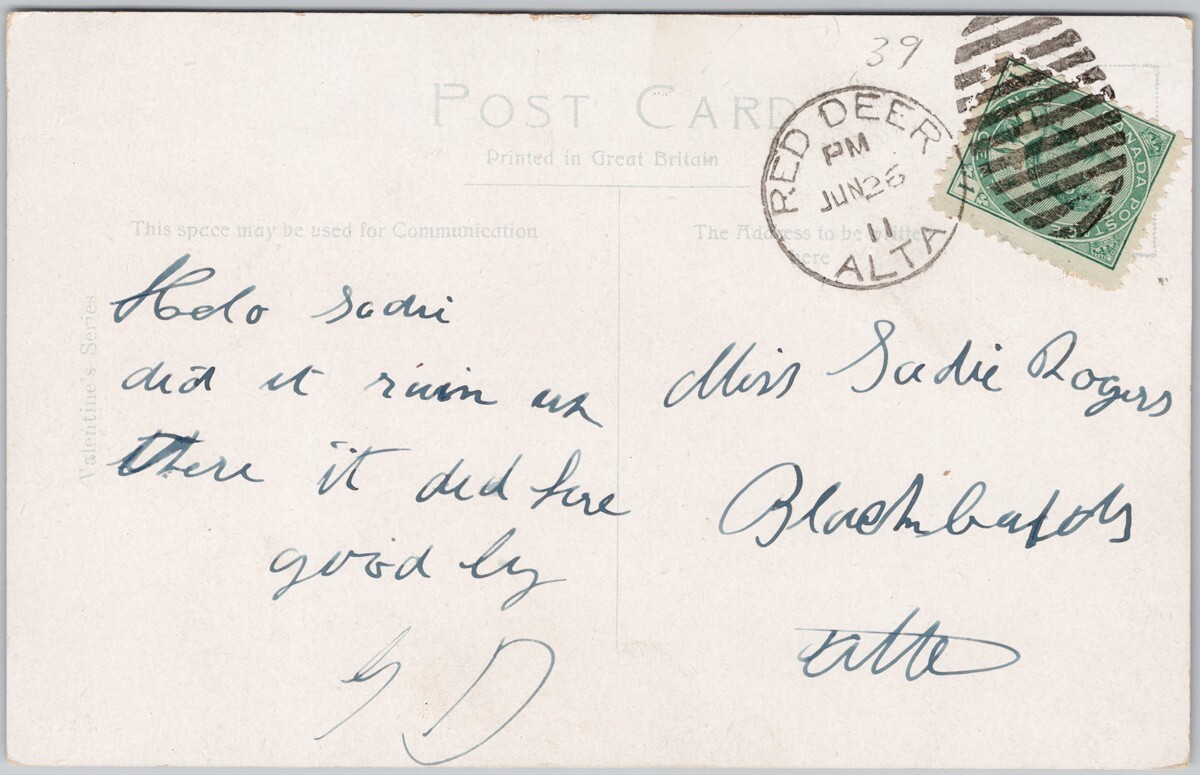 39
POST CARD
Printed in Great Britain
RED DEER
PM
JUN 26
11
ALTA
CANADA POSTAGE
This space may be used for Communication
The Address to be written
here
Valentine's Series
Helo Sadie
did it rain up
there it did here
good by
G D
Miss Sadie Rogers
Blackfalds
Alta